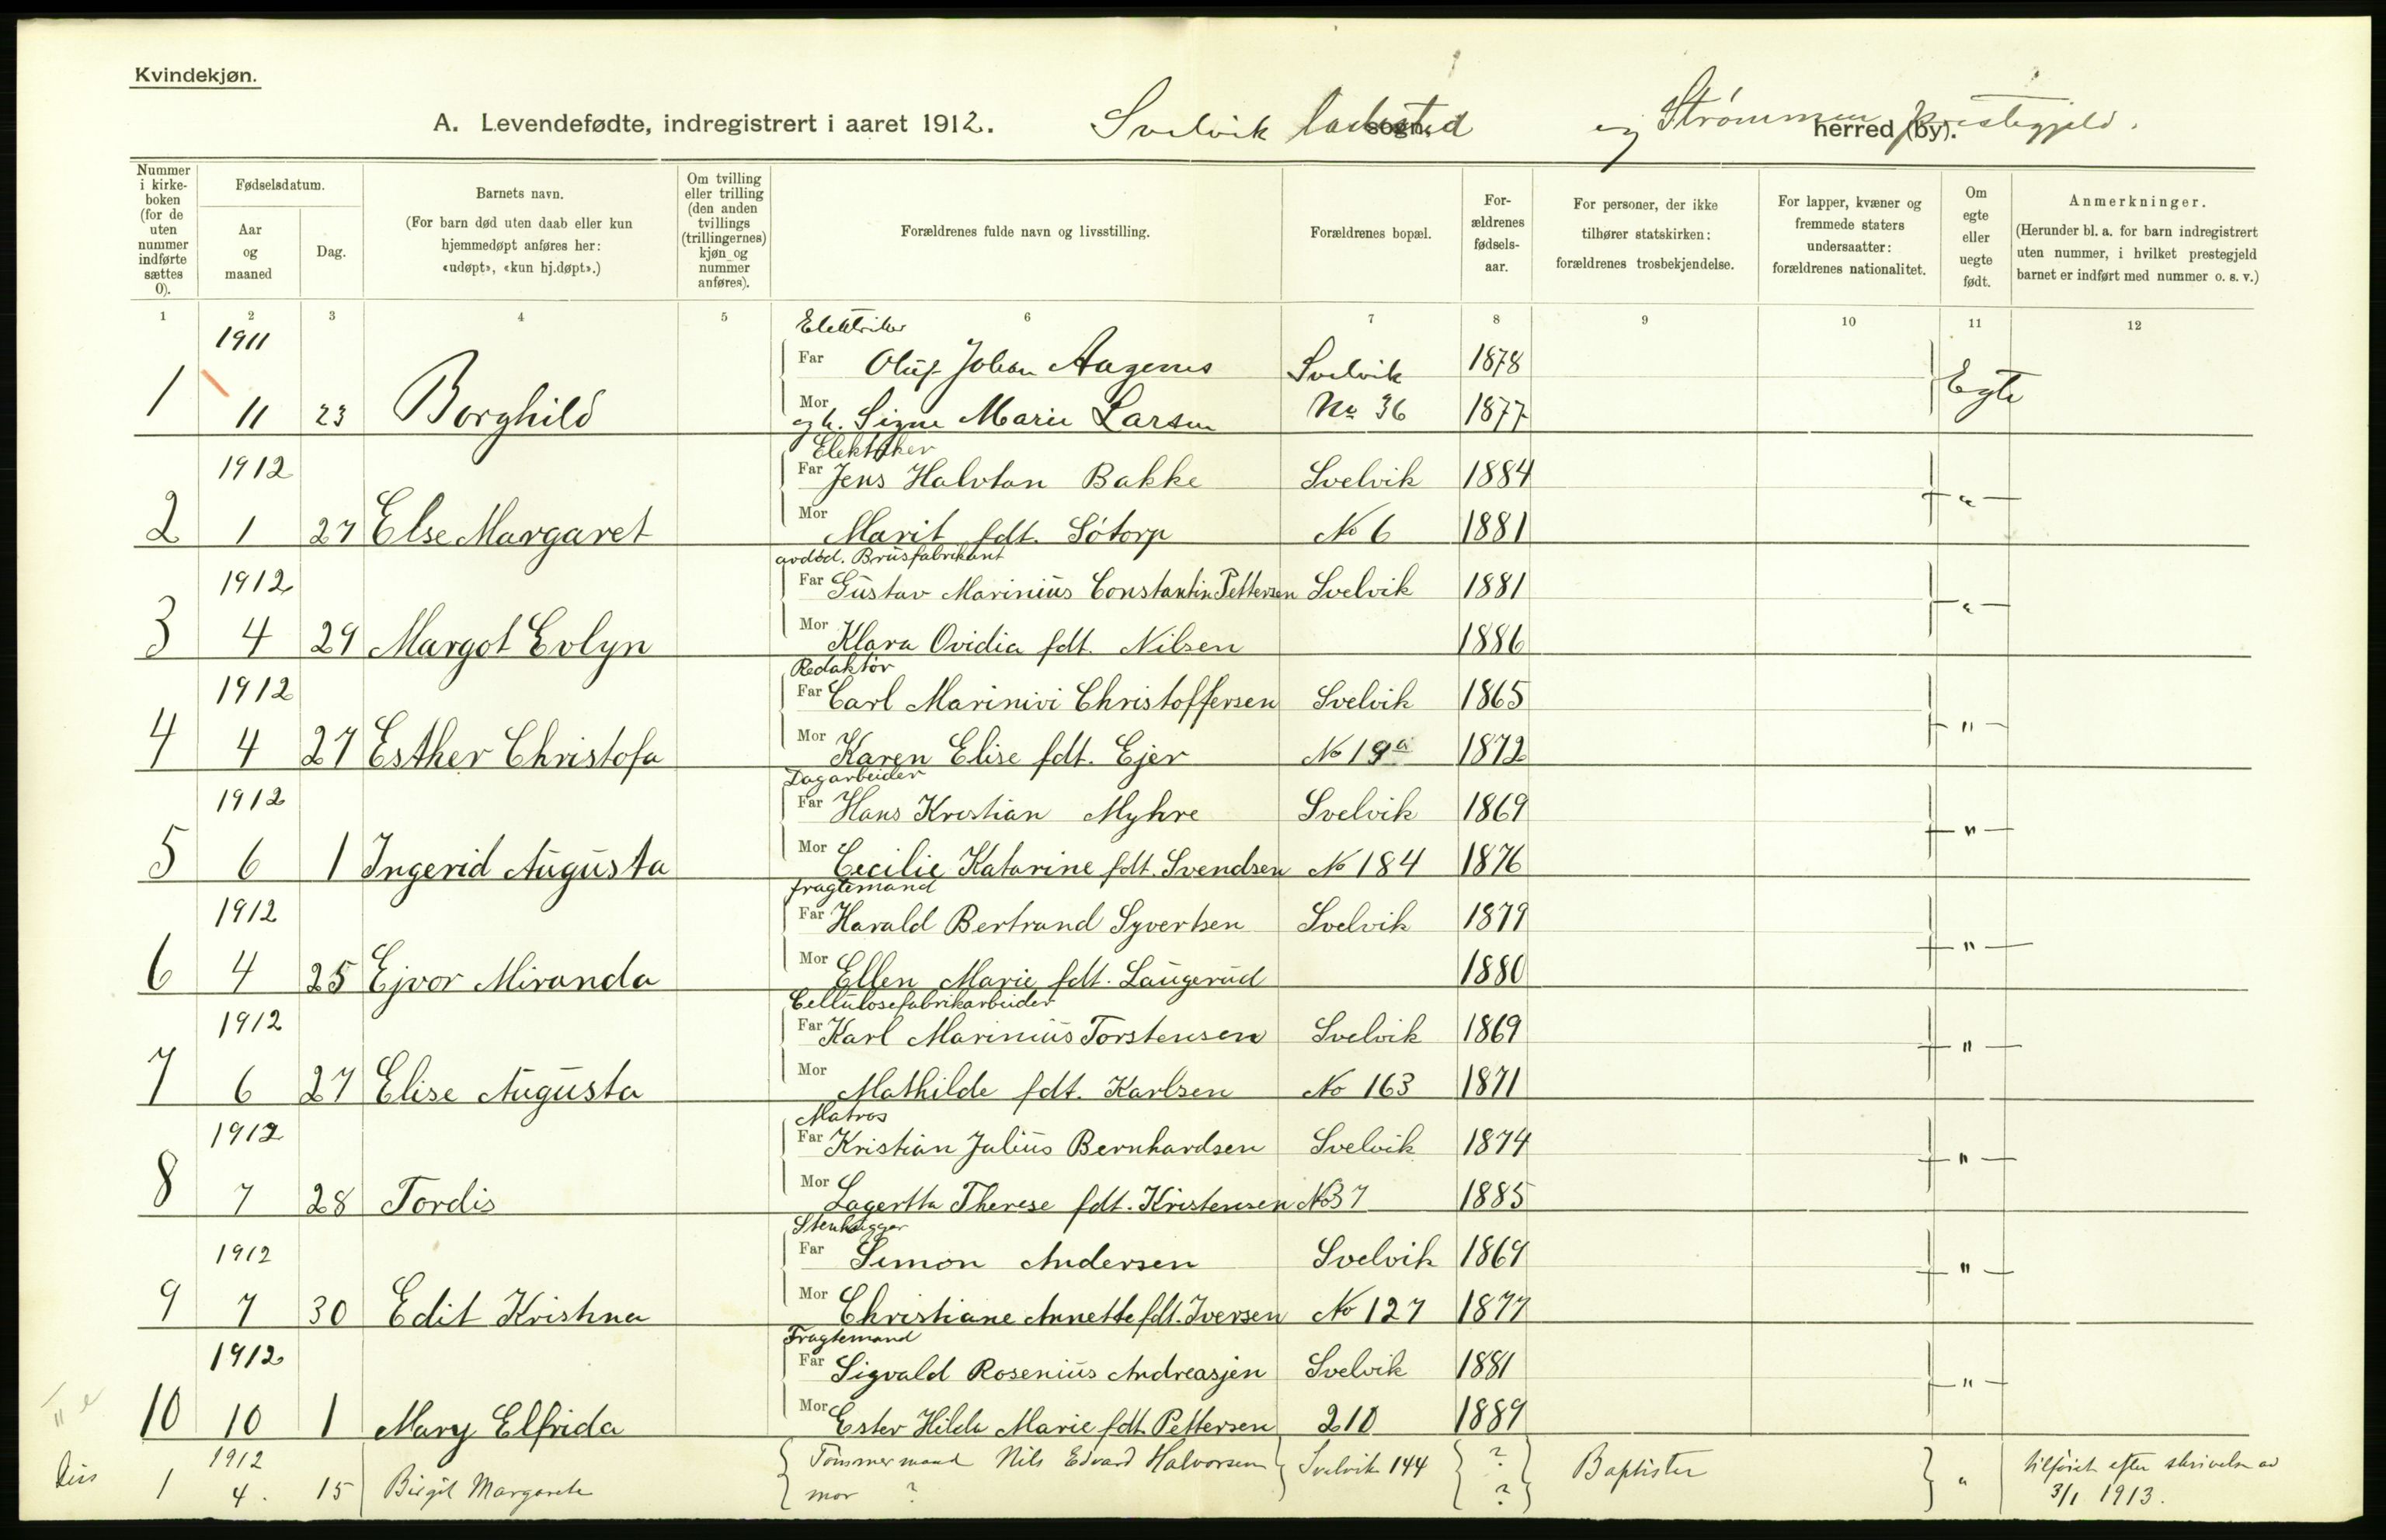 Kvindekjøn.
A. Levendefødte, indregistrert i aaret 1912. Svelvik ladested sogn. og Strømmen prestegjeld. herred (by).
Nummer i kirkeboken (for de uten nummer indførte sættes 0).
Fødselsdatum.
Aar og maaned
Dag.
Barnets navn.
(For barn død uten daab eller kun hjemmedøpt anføres her: «udøpt», «kun hj.døpt».)
Om tvilling eller trilling (den anden tvillings (trillingernes) kjøn og nummer anføres).
Forældrenes fulde navn og livsstilling.
Forældrenes bopæl.
Forældrenes fødselsaar.
For personer, der ikke tilhører statskirken: forældrenes trosbekjendelse.
For lapper, kvæner og fremmede staters undersaatter: forældrenes nationalitet.
Om egte eller uegte født.
Anmerkninger.
(Herunder bl. a. for barn indregistrert uten nummer, i hvilket prestegjeld barnet er indført med nummer o. s. v.)
1 2 3 4 5 6 7 8 9 10 11 12
Elektriker
1911 Far Oluf Johan Aagenes Svelvik 1878
1 11 23 Borghild Mor og h. Signe Marie Larsen No 36 1877 Egte
Elektriker
1912 Far Jens Halvtan Bakke Svelvik 1884
2 1 27 Else Margaret Mor Marit fdt. Sótorp No 6 1881 "
avdød. Brusfabrikant
1912 Far Gustav Marinius Constantin Pettersen Svelvik 1881
3 4 29 Margot Evlyn Mor Klara Ovidia fdt. Nilsen 1886 "
Redaktør
1912 Far Carl Marinivi Christoffersen Svelvik 1865
4 4 27 Esther Christofa Mor Karen Elise fdt. Ejer No 19a 1872 "
Dagarbeider
1912 Far Hans Kristian Myhre Svelvik 1869
5 6 1 Ingerid Augusta Mor Cecilie Katarine fdt. Svendsen No 184 1876 "
fragtemand
1912 Far Harald Bertrand Syvertsen Svelvik 1879
6 4 25 Ejvor Miranda Mor Ellen Marie fdt. Laugerud 1880 "
Cellulosefabrikarbeider
1912 Far Karl Marinius Torstensen Svelvik 1869
7 6 27 Elise Augusta Mor Mathilde fdt. Karlsen No 163 1871 "
Matros
1912 Far Kristian Julius Bernhardsen Svelvik 1874
8 7 28 Tordis Mor Lagertha Therese fdt. Kristensen No 37 1885 "
Stenhugger
1912 Far Simon Andersen Svelvik 1869
9 7 30 Edit Kristina Mor Christiane Annette fdt. Iversen No 127 1877 "
Fragtemand
1912 Far Sigvald Rosenius Andreasjen Svelvik 1881
10 10 1 Mary Elfrida Mor Ester Hilda Marie fdt. Pettersen 210 1889 "
1912 Tømmermand Nils Edvard Halvorsen Svelvik 144 ? Baptister tilføiet efter skrivelse av
Diss 1 4. 15 Birgit Margarete mor ? ? " 3/1 1913.